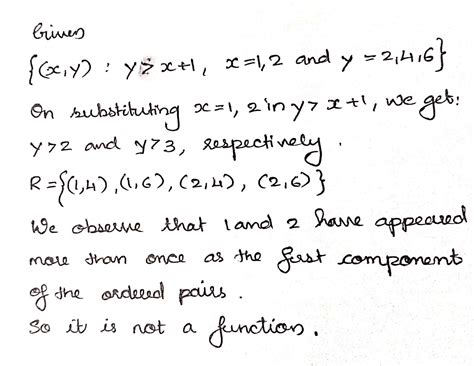 Given
{(x,y) : y > x+1, x=1,2 and y = 2,4,6}
On substituting x=1, 2 in y> x+1, we get:
y>2 and y>3, respectively.
R={(1,4),(1,6), (2,4), (2,6)}
We observe that 1 and 2 have appeared
more than once as the first component
of the ordered pairs.
So it is not a function.